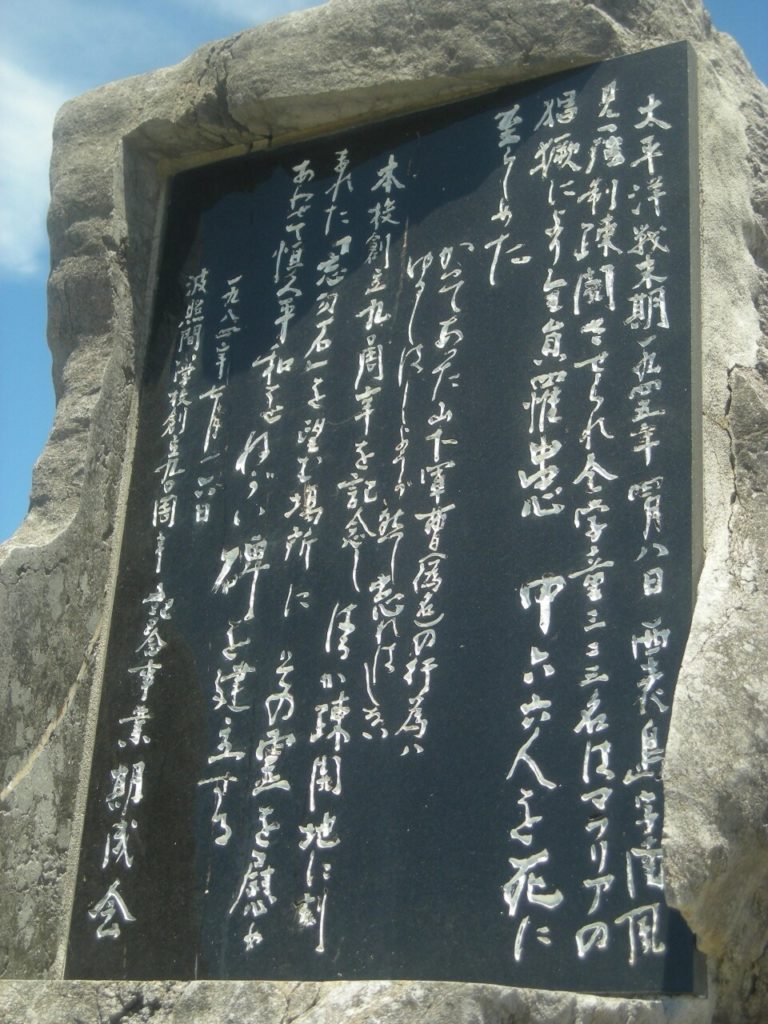 太平洋戦末期一九四五年四月八日西表島字南風
見へ強制疎開させられ全学童三二三名はマラリアの
猖獗により全員罹患 中六六人を死に
至らしめた
かつてあった山下軍曹(偽名)の行為は
ゆるしはしようが然し忘れはしない
本校創立九〇周年を記念し 漬か疎開地に刻
まれた「忘勿石」を望む場所に その霊を慰め
あわせて恒久平和をねがい碑を建立する
一九八四年七月一六日
波照間小学校創立九〇周年記念事業期成会